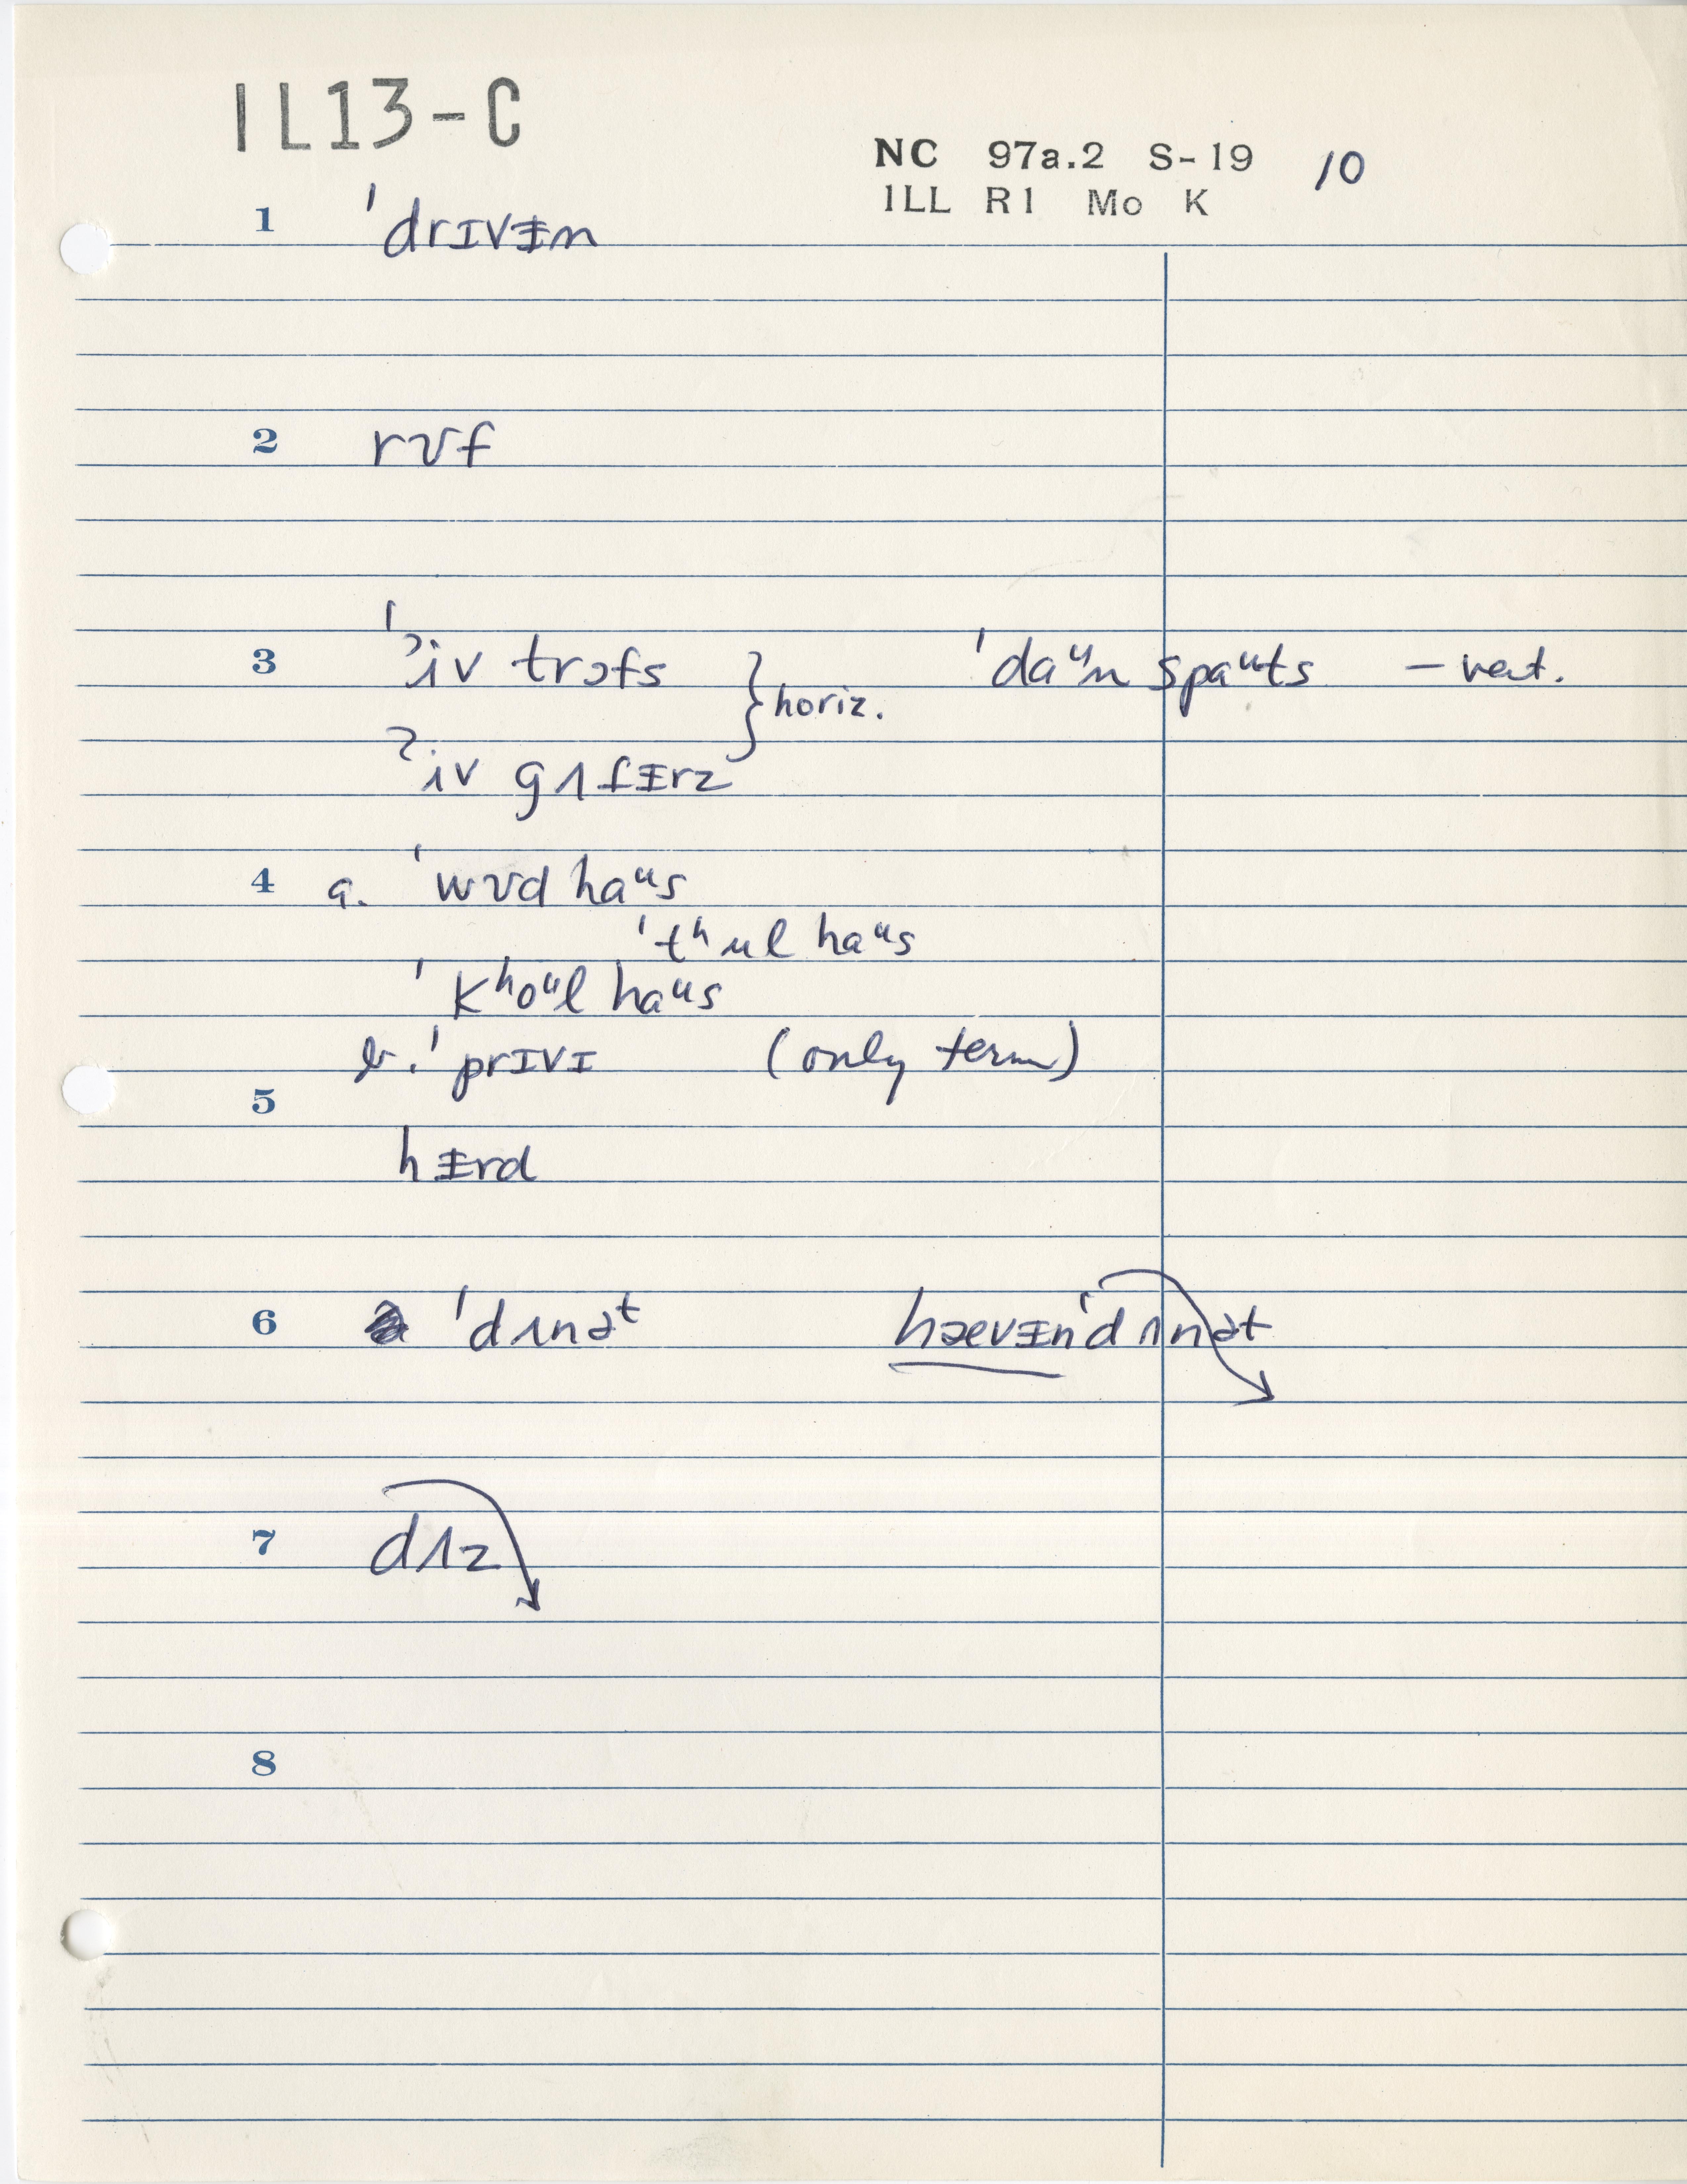 IL13-C
NC 97a.2 S-19 10
ILL R1 Mo K
1 ˈdrɪvᵻn
2 rʊf
3 ˈʔiv trɔfs } horiz. ˈdaᵘn spaᵘts – vert.
ʔiv gʌt̬ᵻrz
4 a. ˈwʊd haᵘs
ˈtʰul haᵘs
ˈkʰoᵘl haᵘs
b. ˈprɪvɪ (only term)
5
hᵻrd
6 ˈdʌnəᵗ hævᵻnˈdʌnət
7 dʌz
8